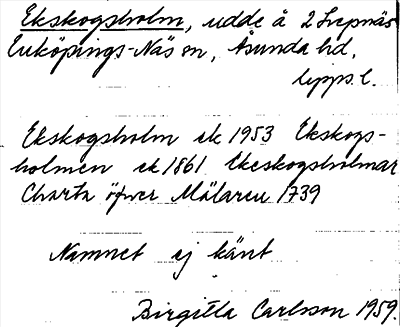 Ekskogsholm, udde å 2 Srepnäs
Enköpings-Näs sn, Åsunda hd,
Upps. l.
Ekskogsholm ek 1953 Ekskogs-
holmen ek 1861 Ekeskogsholmar
Charta öfwer Mälaren 1739
Namnet ej känt
Birgitta Carlsson 1959.